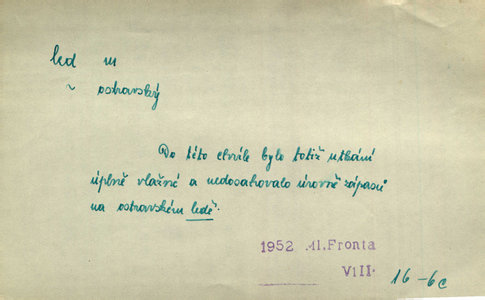 led m
~ ostravský
Do této chvíle bylo totiž utkání
úplně vlažné a nedosahovalo úrovně zápasů
na ostravském ledě.
1952 Ml. Fronta
VIII.
16-6c